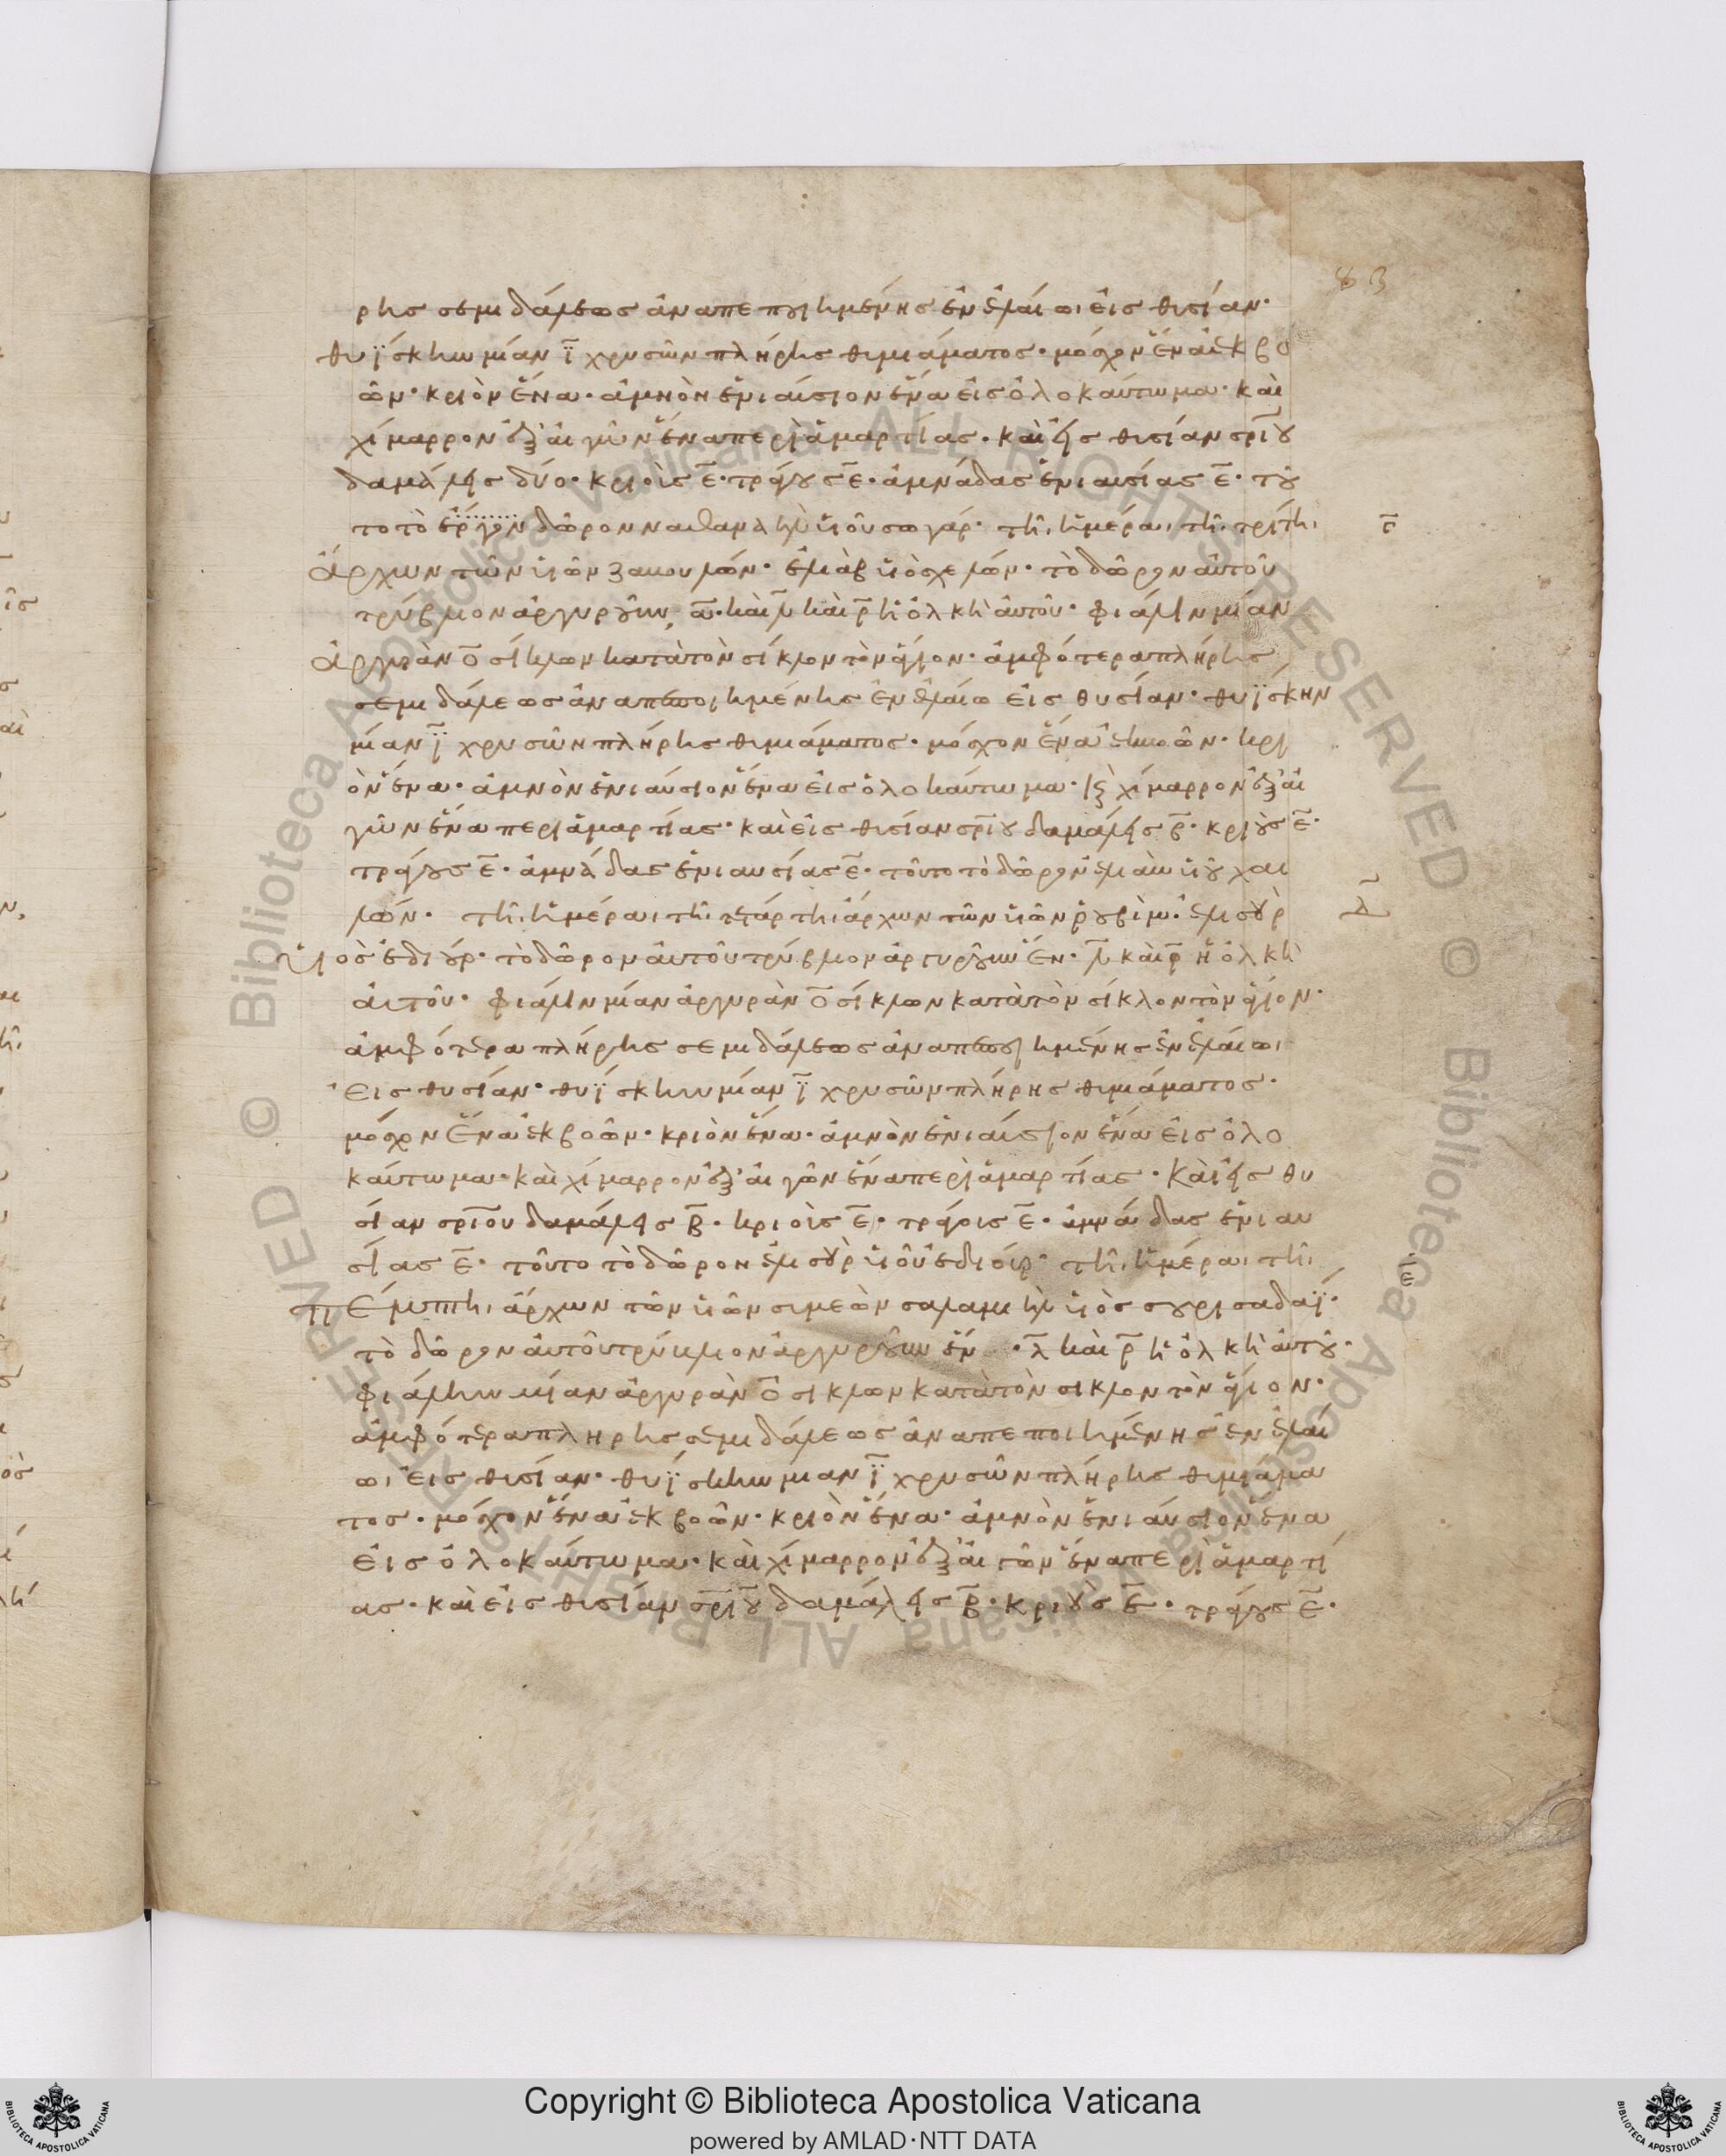 83
ρης σεμιδάλεως ἀναπεποιημένης ἐν ἐλαίωι εἰς θυσίαν·
θυΐσκην μίαν ῑ χρυσῶν πλήρης θυμιάματος· μόσχον ἕνα ἐκ βο
ῶν· κριὸν ἕνα· ἀμνὸν ἐνιαύσιον ἕνα εἰς ὁλοκαύτωμα· καὶ
χίμαρρον ἐξ αἰγῶν ἕνα περὶ ἁμαρτίας· καὶ εἰς θυσίαν σρ̅ι̅ου
δαμάλεις δύο· κριοὺς ε̅· τράγους ε̅· ἀμνάδας ἐνιαυσίας ε̅· τοῦ
το τὸ ἔργον δῶρον ναθαναὴλ υἱοῦ σωγάρ· τῆι ἡμέραι τῆι τρίτηι
γ̅
Ἄρχων τῶν υἱῶν ζαβουλών· ἐλιὰβ υἱὸς χελών· τὸ δῶρον αὐτοῦ
τρύβλιον ἀργυροῦν α̅· καὶ λ̅ καὶ ρ̅ ἡ ὁλκὴ αὐτοῦ· φιάλην μίαν
Ἀργυρᾶν ο̅ σίκλων κατὰ τὸν σίκλον τὸν ἅγιον· ἀμφότερα πλήρης
σεμιδάλεως ἀναπεποιημένης ἐν ἐλαίω εἰς θυσίαν· θυΐσκην
μίαν ῑ χρυσῶν πλήρης θυμιάματος· μόσχον ἕνα ἐκ βοῶν· κρι
ὸν ἕνα· ἀμνὸν ἐνιαύσιον ἕνα εἰς ὁλοκαύτωμα· κ̀ χίμαρρον ἐξ αἰ
γῶν ἕνα περὶ ἁμαρτίας· καὶ εἰς θυσίαν σρ̅ι̅ου δαμάλεις β̅· κριοὺς ε̅·
τράγους ε̅· ἀμνάδας ἐνιαυσίας ε̅· τοῦτο τὸ δῶρον ἐλιὰβ υἱοῦ χαι
λών· τῆι ἡμέραι τῆι τετάρτηι ἄρχων τῶν υἱῶν ῥουβίμ· ἐλισοὺρ
δ̅
υἱὸς ἐδιούρ· τὸ δῶρον αὐτοῦ τρύβλιον ἀργυροῦν ἕν· λ̅ καὶ ρ̅ ἡ ὁλκὴ
αὐτοῦ· φιάλην μίαν ἀργυρᾶν ο̅ σίκλων κατὰ τὸν σίκλον τὸν ἅγιον·
ἀμφότερα πλήρης σεμιδάλεως ἀναπεποιημένης ἐν ἐλαίωι
εἰς θυσίαν· θυΐσκην μίαν ῑ χρυσῶν πλήρης θυμιάματος·
μόσχον ἕνα ἐκ βοῶν· κριὸν ἕνα· ἀμνὸν ἐνιαύσιον ἕνα εἰς ὁλο
καύτωμα· καὶ χίμαρρον ἐξ αἰγῶν ἕνα περὶ ἁμαρτίας· Καὶ εἰς θυ
σίαν σρ̅ι̅ου δαμάλεις β̅· κριοὺς ε̅· τράγοις ε̅· ἀμνάδας ἐνιαυ
σίας ε̅· τοῦτο τὸ δῶρον ἐλισοὺρ υἱοῦ ἐδιούρ· τῆι ἡμέραι τῆι
ε̅
πέμπτηι ἄρχων τῶν υἱῶν σιμεὼν σαλαμιὴλ υἱὸς σουρισαδαΐ·
τὸ δῶρον αὐτοῦ τρύβλιον ἀργυροῦν ἕν · λ̅ καὶ ρ̅ ἡ ὁλκὴ αὐτοῦ·
φιάλην μίαν ἀργυρᾶν ο̅ σικλων κατὰ τὸν σικλον τὸν ἅγιον·
ἀμφότερα πληρης σεμιδάλεως ἀναπεποιημένης ἐν ἐλαί
ωι εἰς θυσίαν· θυΐσκην μιαν ῑ χρυσῶν πλήρης θυμιάμα
τος· μόσχον ἕνα ἐκ βοῶν· κριὸν ἕνα· ἀμνὸν ἐνιαύσιον ἕνα
εἰς ὁλοκαύτωμα· καὶ χίμαρρον ἐξ αἰγῶν ἕνα περὶ ἁμαρτί
ας· καὶ εἰς θυσίαν σρ̅ι̅ου δαμάλεις β̅· κριοὺς ε̅· τράγους ε̅·
Copyright © Biblioteca Apostolica Vaticana
powered by AMLAD·NTT DATA